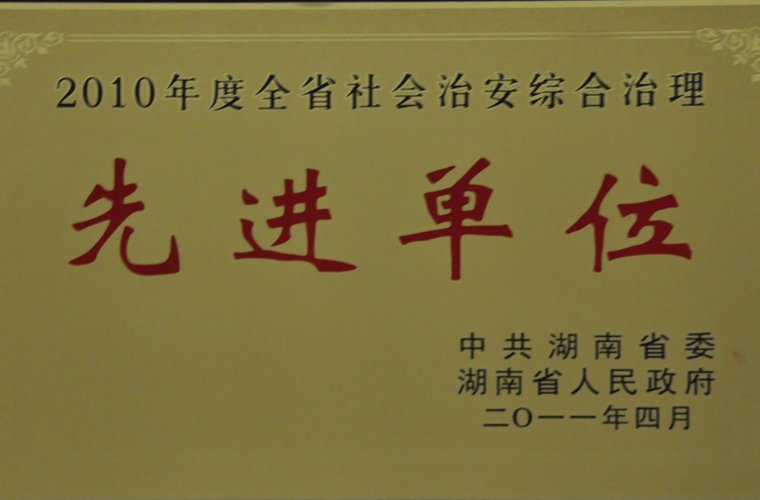 2010年度全省社会治安综合治理
先进单位
中共湖南省委
湖南省人民政府
二O一一年四月